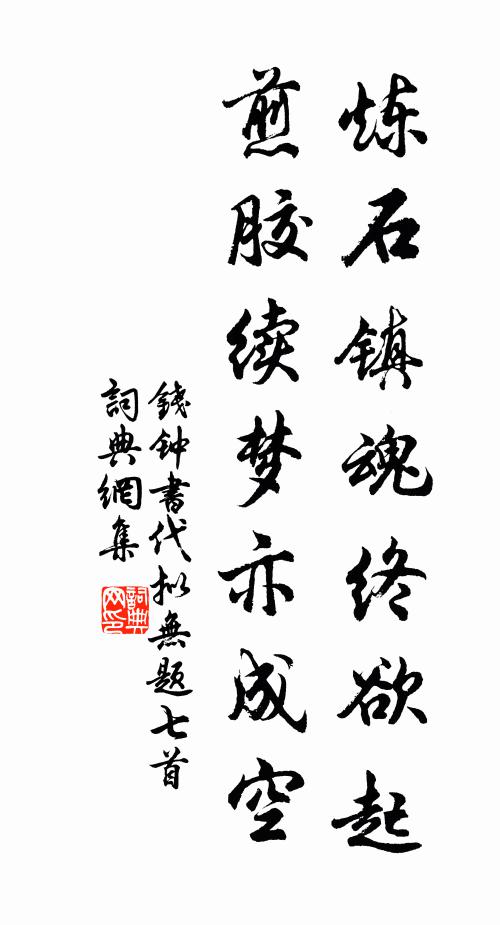 炼石镇魂终欲起
煎胶续梦亦成空
錢钟書代拟無题七首
詞典網集
詞典
网印